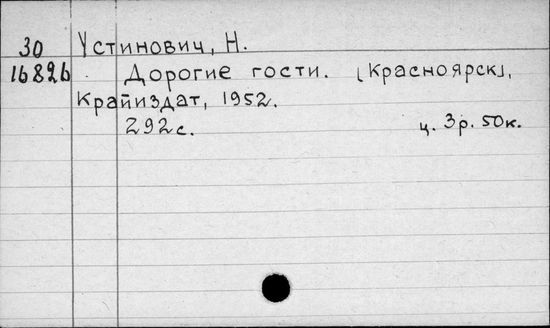 30 Устинович, Н.
16826 Дорогие гости. [Красноярск],
Крайиздат, 1952.
292 с. ц. 3 р. 50 к.